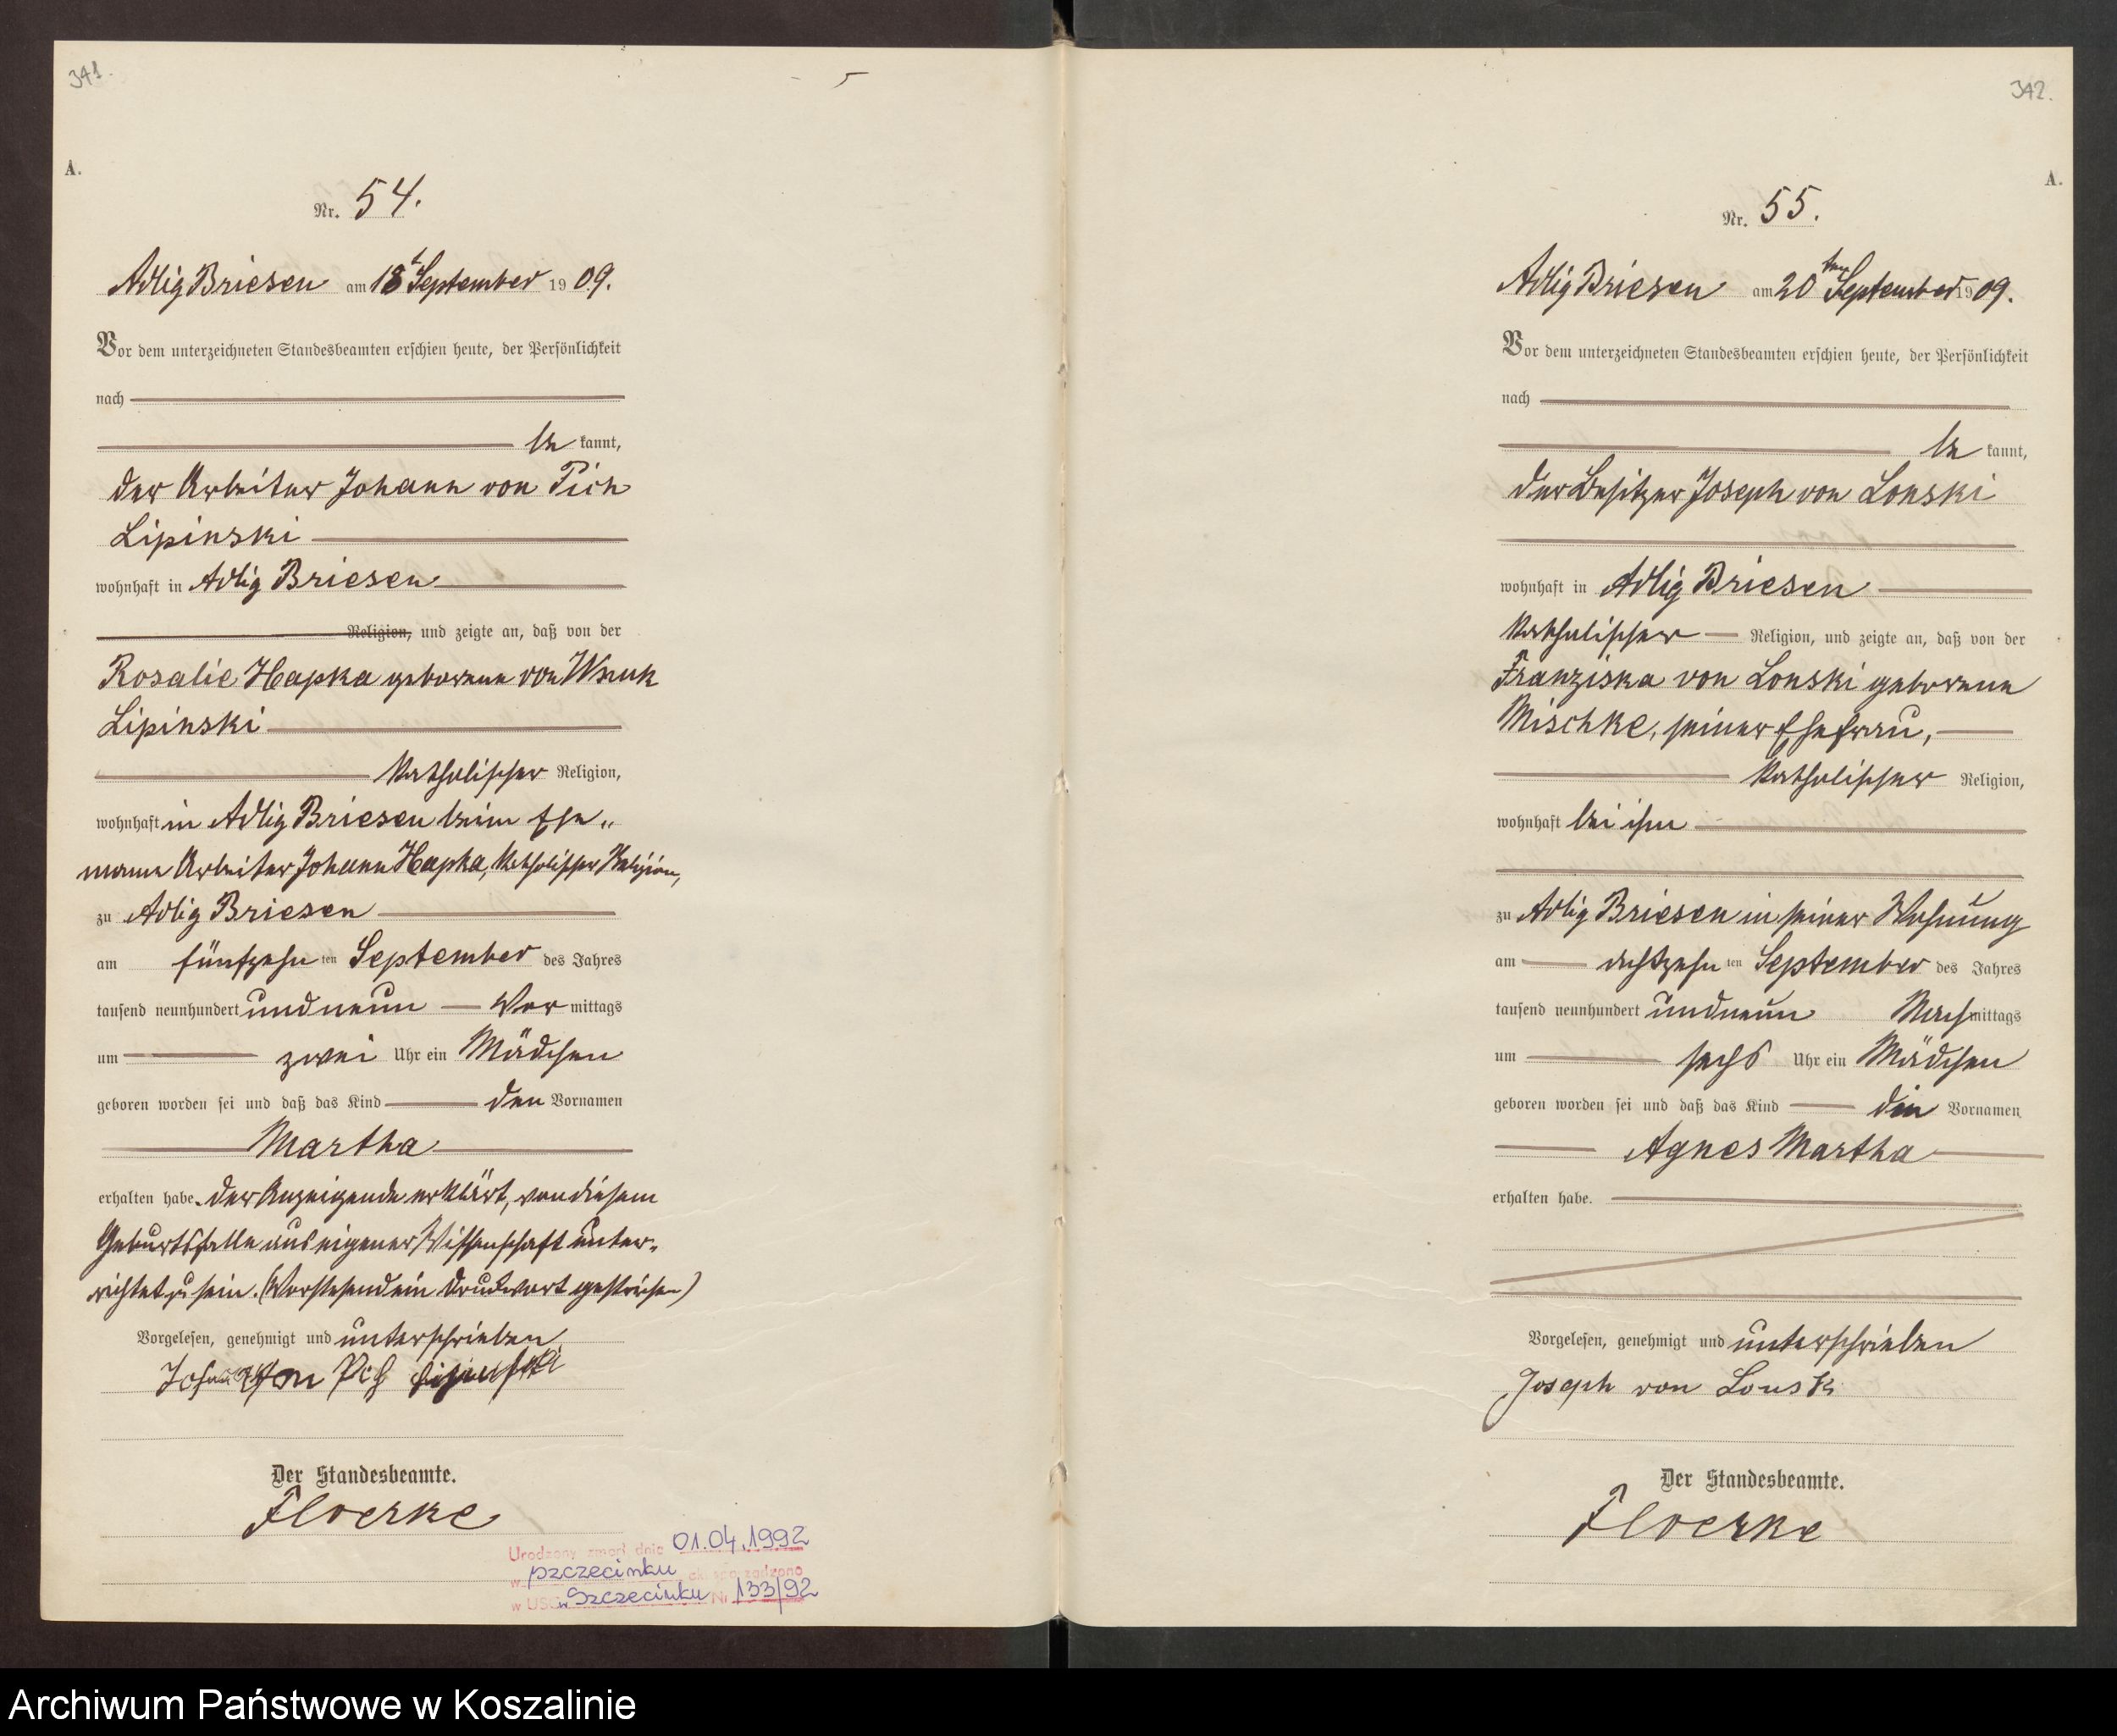 341.
A.
Nr. 54.
Adlig Briesen am 18t September 1909.
Vor dem unterzeichneten Standesbeamten erschien heute, der Persönlichkeit
nach
be kannt,
der Arbeiter Johann von Pich
Lipinski
wohnhaft in Adlig Briesen
Religion, und zeigte an, daß von der
Rosalie Hapka geborene von Wnuk
Lipinski
katholischer Religion,
wohnhaft in Adlig Briesen beim Ehe„
mann Arbeiter Johann Hapka, katholischer Religion,
zu Adlig Briesen
am fünfzehnten September des Jahres
tausend neunhundert und neun Vormittags
um zwei Uhr ein Mädchen
geboren worden sei und daß das Kind den Vornamen
Martha
erhalten habe. Der Anzeigende erklärt, von diesem
Geburtsfalle aus eigener Wissenschaft unter„
richtet zu sein. (Vorstehend ein Druckwort gestrichen)
Vorgelesen, genehmigt und unterschrieben
Johann von Pich Lipinski
Der Standesbeamte.
Floerke
Urodzony zmarł dnia 01.04.1992
w pzczecinku akt sporządzono
w USC w Szczecinku Nr 133/92
342.
A.
Nr. 55.
Adlig Briesen am 20ten September 1909.
Vor dem unterzeichneten Standesbeamten erschien heute, der Persönlichkeit
nach
be kannt,
der Besitzer Joseph von Lonski
wohnhaft in Adlig Briesen
katholischer Religion, und zeigte an, daß von der
Franziska von Lonski geborene
Mischke, seiner Ehefrau,
katholischer Religion,
wohnhaft bei ihm
zu Adlig Briesen in seiner Wohnung
am achtzehnten September des Jahres
tausend neunhundert und neun Nachmittags
um sechs Uhr ein Mädchen
geboren worden sei und daß das Kind die Vornamen
Agnes Martha
erhalten habe.
Vorgelesen, genehmigt und unterschrieben
Joseph von Lonski
Der Standesbeamte.
Floerke
Archiwum Państwowe w Koszalinie